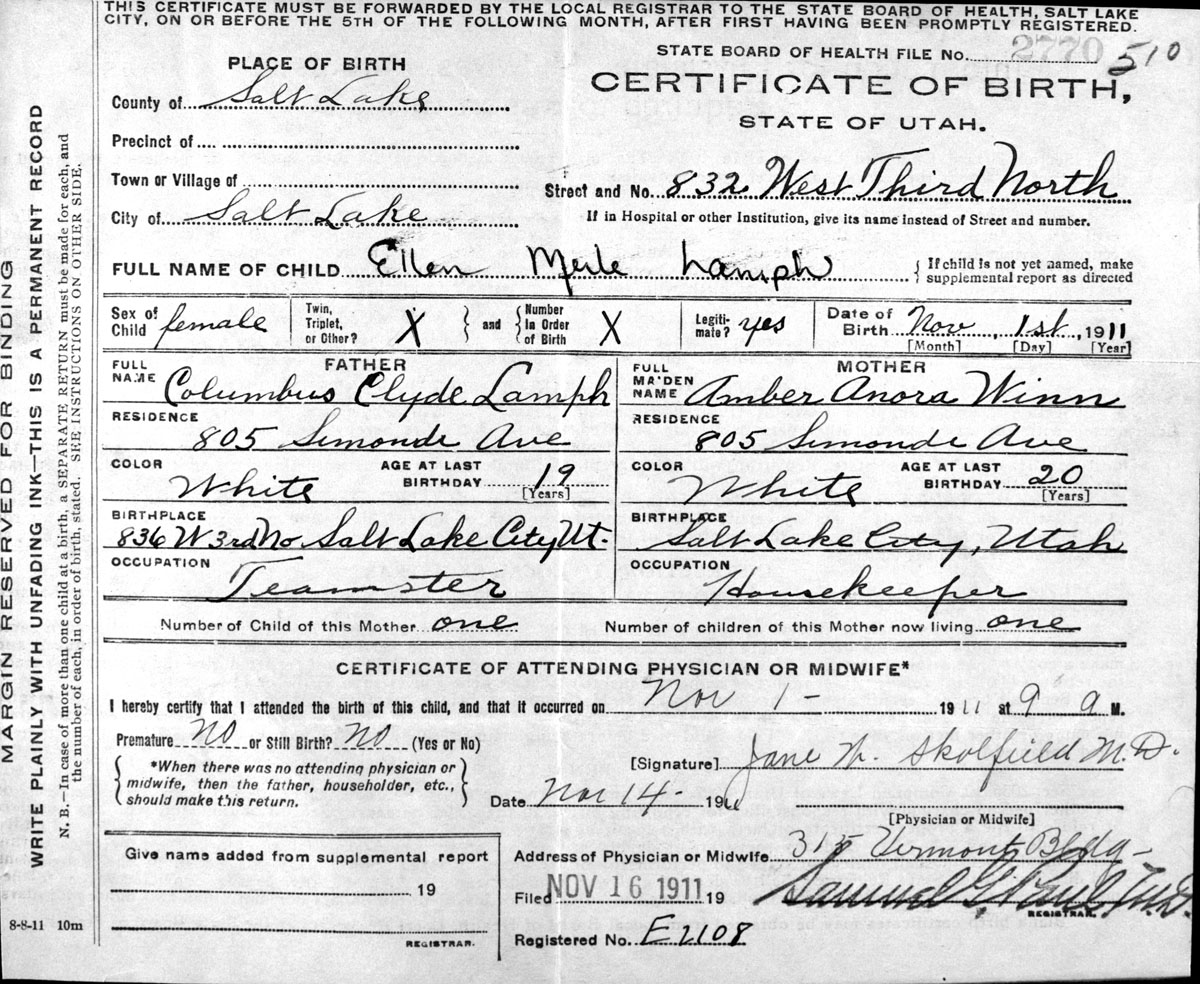 THIS CERTIFICATE MUST BE FORWARDED BY THE LOCAL REGISTRAR TO THE STATE BOARD OF HEALTH, SALT LAKE
CITY, ON OR BEFORE THE 5TH OF THE FOLLOWING MONTH, AFTER FIRST HAVING BEEN PROMPTLY REGISTERED.
STATE BOARD OF HEALTH FILE No. 2770 510
PLACE OF BIRTH
CERTIFICATE OF BIRTH,
STATE OF UTAH.
County of Salt Lake
Precinct of
Town or Village of
Street and No. 832 West Third North
City of Salt Lake
If in Hospital or other Institution, give its name instead of Street and number.
FULL NAME OF CHILD Ellen Merle Lamph
{ If child is not yet named, make
supplemental report as directed
Sex of Child female
Twin, Triplet, or Other? X } and { Number In Order of Birth X
Legiti-mate? yes
Date of Birth Nov 1st, 1911
[Month] [Day] [Year]
FATHER
MOTHER
FULL NAME Columbus Clyde Lamph
FULL MAIDEN NAME Amber Anora Winn
RESIDENCE
805 Simonde Ave
RESIDENCE
805 Simonde Ave
COLOR White
AGE AT LAST BIRTHDAY 19
[Years]
COLOR White
AGE AT LAST BIRTHDAY 20
[Years]
BIRTHPLACE
836 W 3rd No Salt Lake City Ut.
BIRTHPLACE
Salt Lake City, Utah
OCCUPATION
Teamster
OCCUPATION
Housekeeper
Number of Child of this Mother one
Number of children of this Mother now living one
CERTIFICATE OF ATTENDING PHYSICIAN OR MIDWIFE*
I hereby certify that I attended the birth of this child, and that it occurred on Nov 1 - 1911 at 9 a M.
Premature No or Still Birth? No (Yes or No)
[Signature] Jane W. Skolfield M.D.
{ *When there was no attending physician or
midwife, then the father, householder, etc.,
should make this return. }
Date Nov 14 - 1911
[Physician or Midwife]
Give name added from supplemental report
19
REGISTRAR.
Address of Physician or Midwife 315 Vermont Bldg -
Filed NOV 16 1911 19
Samuel G. Paul M.D.
REGISTRAR.
Registered No. E2108
MARGIN RESERVED FOR BINDING
WRITE PLAINLY WITH UNFADING INK—THIS IS A PERMANENT RECORD
N. B.—In case of more than one child at a birth, a SEPARATE RETURN must be made for each, and
the number of each, in order of birth, stated. SEE INSTRUCTIONS ON OTHER SIDE.
8-8-11 10m